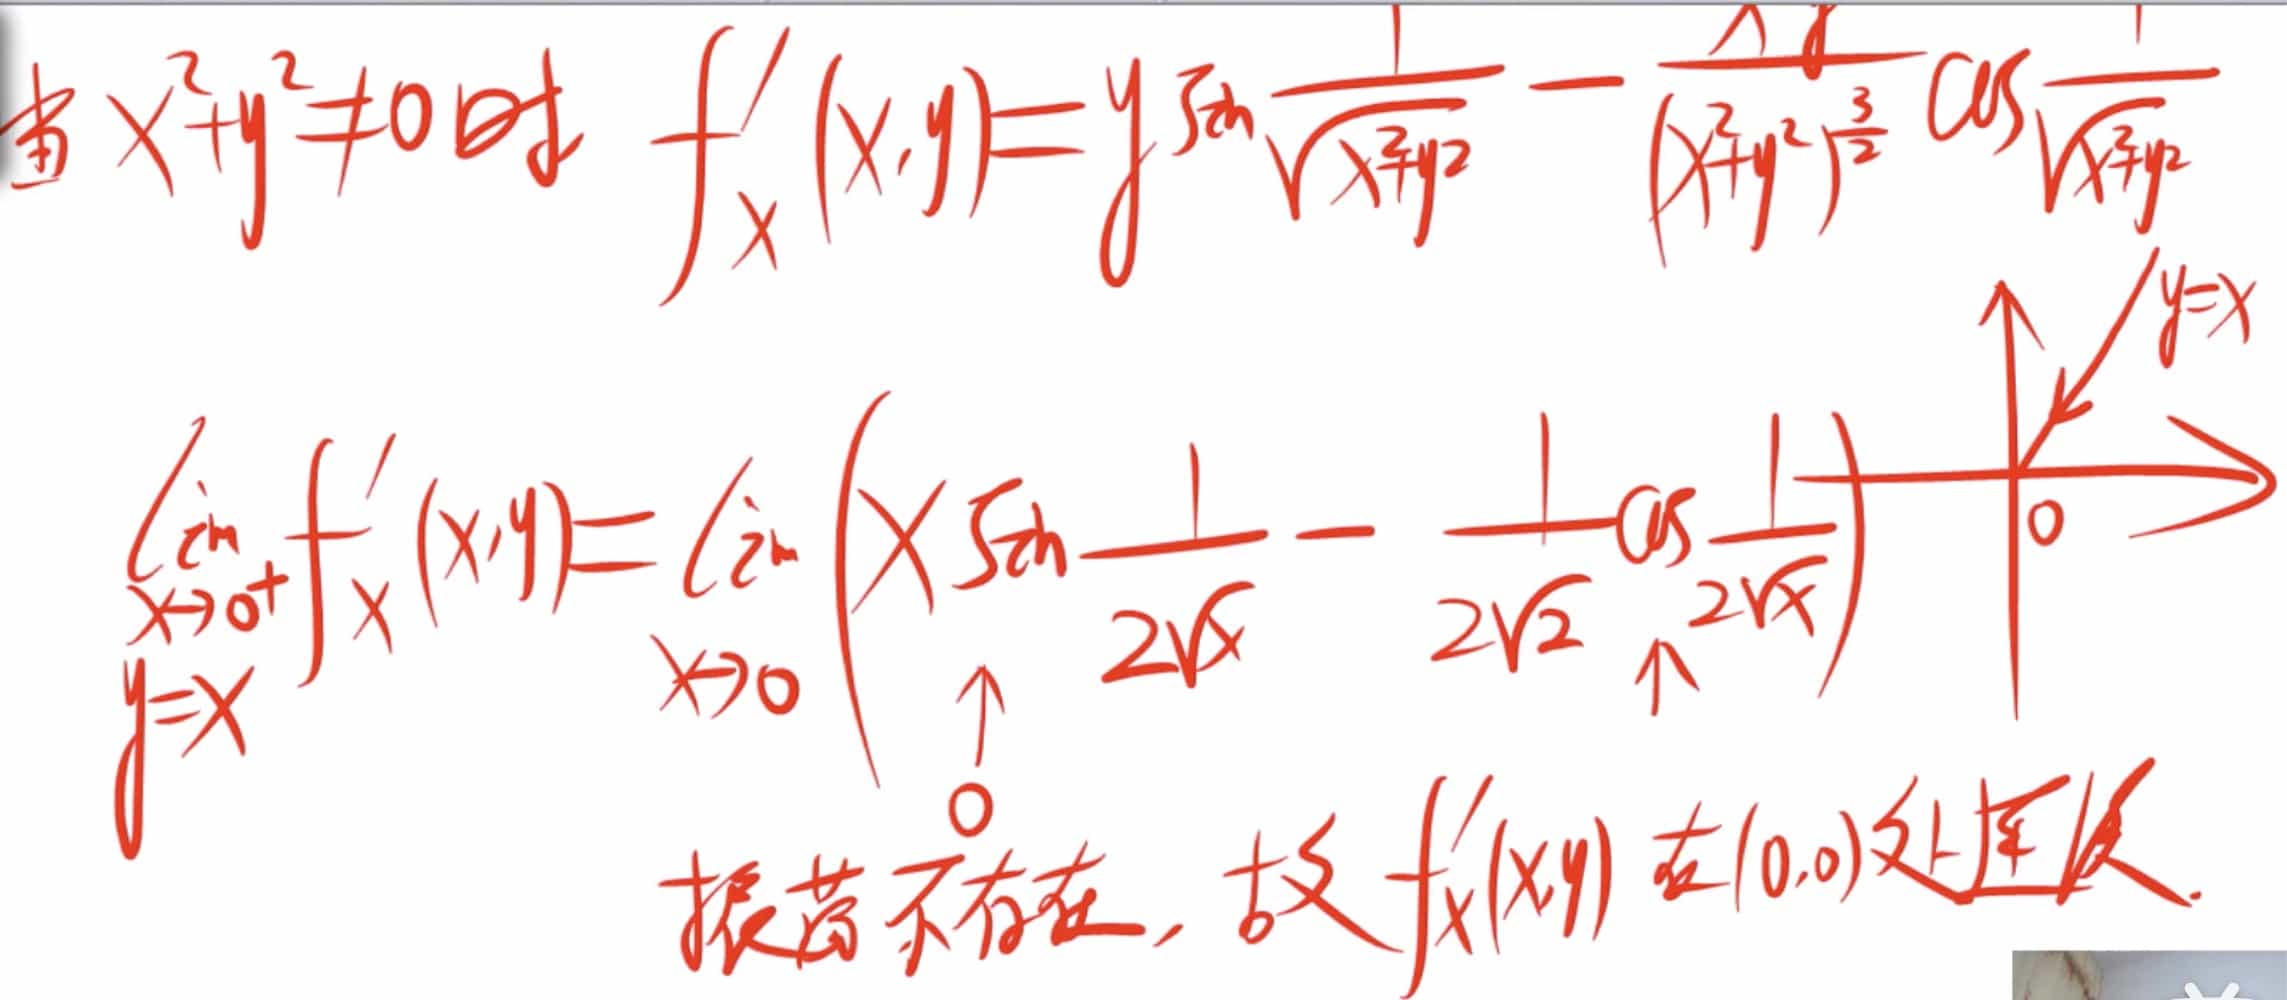 当 x²+y²≠0 时 f'ₓ(x,y)=y sin 1/√(x²+y²) − xy/(x²+y²)^(3/2) cos 1/√(x²+y²)
y=x
lim x→0⁺ y=x f'ₓ(x,y)= lim x→0 (x sin 1/(2√x) − 1/(2√2) cos 1/(2√x))
0
↑ ↑
0
振荡不存在, 故 f'ₓ(x,y) 在(0,0)处连.